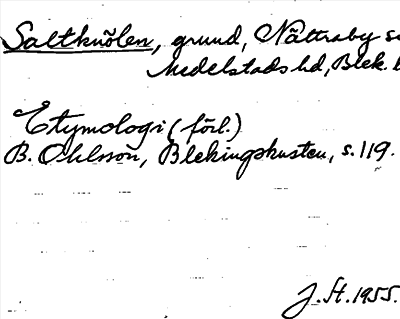 Saltknölen, grund, Nättraby s
Medelstads hd, Blek. l
Etymologi (förl.)
B. Ohlsson, Blekingskusten, s. 119.
J. St. 1955.